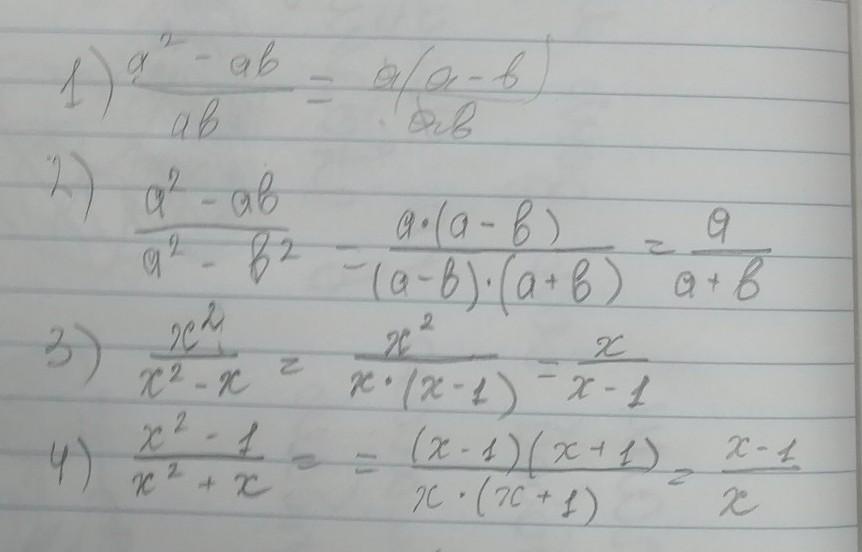 1) a² - ab / ab = a(a - b) / ab
2) a² - ab / a² - b² = a·(a - b) / (a - b)·(a + b) = a / a + b
3) x² / x² - x = x² / x·(x - 1) = x / x - 1
4) x² - 1 / x² + x = = (x - 1)(x + 1) / x·(x + 1) = x - 1 / x